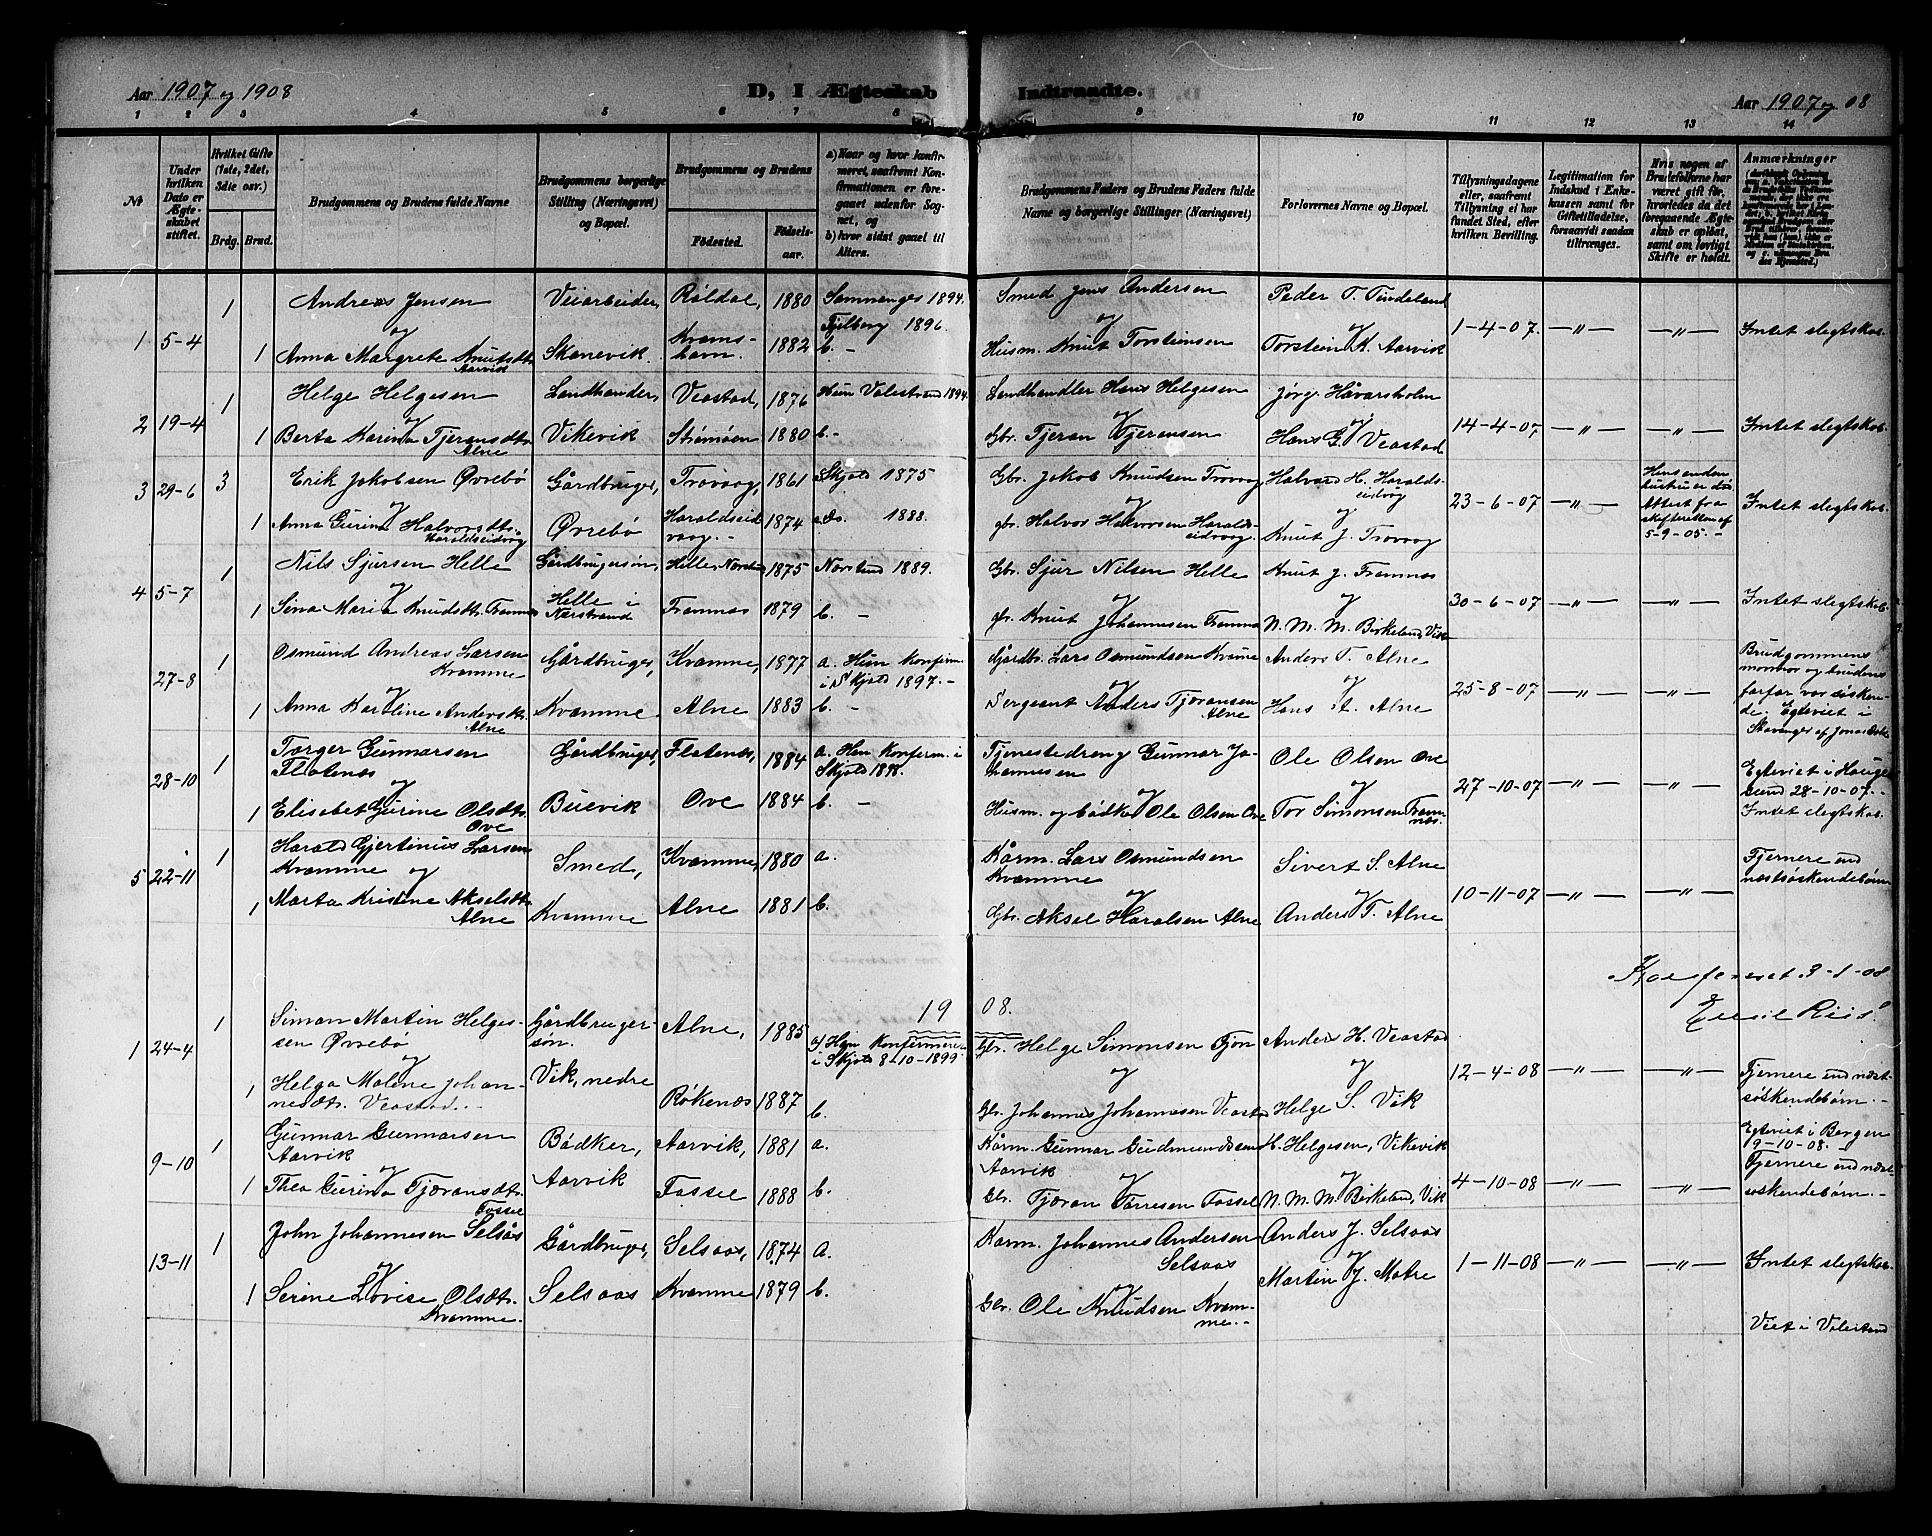 Aar 1907 og 1908
D, I Ægteskab Indtraadte.
Aar 1907 og 08
1 2 3 4 5 6 7 8 9 10 11 12 13 14
No
Under hvilken Dato er Ægteskabet stiftet.
Hvilket Gifte (1ste, 2det, 3die osv.)
Brdg. Brud.
Brudgommens og Brudens fulde Navne
Brudgommens borgerlige Stilling (Næringsvei) og Bopæl.
Brudgommens og Brudens
Fødested.
Fødselsaar.
a) Naar og hvor konfirmeret, saafremt Konfirmationen er foregaaet udenfor Sognet, og
b) hvor sidst gaaet til Alters.
Brudgommens Faders og Brudens Faders fulde Navne og borgerlige Stillinger (Næringsvei)
Forlovernes Navne og Bopæl.
Tillysningsdagene eller, saafremt Tillysning ei har fundet Sted, efter hvilken Bevilling.
Legitimation for Indskud i Enkekassen samt for Giftetilladelse, forsaavidt saadan tiltrænges.
Hvis nogen af Brudefolkene har været gift før, hvorledes da det foregaaende Ægteskab er opløst, samt om lovligt Skifte er holdt.
Anmærkninger
1 5-4 1 Andreas Jensen Veiarbeider, Røldal, 1880 Samnanger 1894. Smed Jens Andersen Peder T. Tindeland
og Fjelberg 1896. og og 1-4-07 —„— —„— Intet slegtskab.
1 Anna Margrete Knutsdtr. Aarvik Skonevik. Kramshavn. 1882 b. - Husm. Knut Torsteinsen Torstein K. Aarvik
2 19-4 1 Helge Helgesen Landhandler, Veastad, 1876 Hun Valestrand 1894. Landhandler Hans Helgesen Jørg. Håvarsholm
og og og 14-4-07 —„— —„— Intet slegtskab.
1 Berta Karina Tjeransdtr. Alne Vikevik Strømøen 1880 b. - Gbr. Tjeran Tjeransen Hans G. Veastad
3 29-6 3 Erik Jakobsen Øvrebø Gårdbruger, Trovaag, 1861 Skjold 1875 Gbr. Jakob Knudsen Trovaag Halvard H. Haraldseidvåg
og og og 23-6-07 —„— Hans anden hustru er død. Attest fra skifteretten af 5-9-05. - Intet slegtskab.
1 Anna Gurina Halvorsdtr. Haraldseidvåg Øvrebø Haraldseidvaag. - 1874 do. 1888. gbr. Halvor Halvorsen Haraldseidvaag. Knut J. Trovaag
4 5-7 1 Nils Sjursen Helle Gårdbrugersøn, Helle, Narstrand 1875 Narstrand 1889. Gbr. Sjur Nilsen Helle Knut J. Framnas
og og og 30-6-07 —„— —„— Intet slegtskab.
1 Sina Maria Knudsdtr. Framnas Helle i Narstrand Framnas 1879 b. - gbr. Knut Johannesen Framnas N. M. M. Birkeland, Vik
27-8 1 Osmund Andreas Larsen Kvamme Gårdbruger, Kvamme, 1877 a. Hun konfirm. i Skjold 1897. - Gårdbr. Lars Osmundsen Kvamme Anders T. Alne
og og og 25-8-07 —„— —„— Brudgommens mormor og brudens farfar var søskende. Egteviet i Stavanger af
1 Anna Karoline Andersdtr. Alne Kvamme Alne 1883 b. - Sergeant Anders Tjøransen Alne Hans A. Alne
28-10 1 Torger Gunnarsen Flotenas Gårdbruger, Flotenæs, 1884 a. Han konfirm. i Skjold 1898. Tjenestedreng Gunnar Johannesen Ole Olsen Ove
og og og 27-10-07 —„— —„— Egteviet i Haugesund 28-10-07. - Intet slegtskab.
1 Elisabet Gurine Olsdtr. Ove Buevik Ove 1884 b. - Husm. og bødker Ole Olsen Ove Tor Simonsen Framnas.
5 22-11 1 Harald Gjertinius Larsen Kvamme Smed, Kvamme, 1880 a. Kårm. Lars Osmundsen Kvamme Sivert S. Alne
og og og 10-11-07 —„— —„— Fjernere end næstsøskendebørn
1 Marta Kristine Akselsdtr. Alne Kvamme Alne 1881 b. Gbr. Aksel Haralsen Alne Anders T. Alne
Konfereret 3-1-08
Emil Riis
1908.
1 24-4 1 Simon Martin Helgessen Øvrebø Gårdbrugersøn. Alne, 1885 a) Han konfirmeret i Skjold 8-10-1899. Gbr. Helge Simonsen Tjon Anders H. Veastad
og og og 12-4-08 —„— —„— Fjernere end næstsøskendebørn. -
1 Helga Malene Johannesdtr. Veastad. - Vik, nedre Røkenæs 1887 b. Gbr. Johannes Johannesen Veastad Helge S. Vik
9-10 1 Gunnar Gunnarsen Aarvik Bødker, Aarvik, 1881 a. Kårm. Gunnar Gudmundssen Aarvik H. Helgesen, Vikevik
og og og 4-10-08 —„— —„— Egteviet i Bergen 9-10-08. - Fjernere end næstsøskendebørn. -
1 Thea Gurina Tjæransdtr. Fossel Aarvik Fossel 1888 b. Gbr. Tjæran Torresen Fossel N. M. M. Birkeland, Vik
13-11 1 John Johannesen Selsås Gårdbruger, Selsaas, 1874 a. Karm. Johannes Andersen Selsaas Anders J. Selsaas
og og og 1-11-08 —„— —„— Intet slegtskab.
1 Serine Lovise Olsdtr. Kvamme. Selsaas Kvamme 1879 b. Gbr. Ole Knudsen Kvamme. - Martin J. Matre
Viet i Valestrand